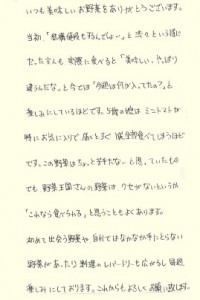 いつも美味しいお野菜をありがとうございます。
当初「結構値段もするんでは…」と渋々という感じ
だった主人も実際に食べると「美味しい、やっぱり
違うんだな」と今では「今回は何が入ってた?」と
楽しみにしているほどです。5歳の娘はミニトマトが
特にお気に入りで届くとすぐ1袋全部食べてしまうほど
です。この野菜はちょっと苦手だな…と思っていたもの
でも野菜王国さんの野菜はクセがないというか
「これなら食べられる」と思うこともよくあります。
初めて出会う野菜や自分ではなかなか手にとらない
野菜があったり料理のレパートリーも広がるし毎回
楽しみにしております。これからもよろしくお願い致します。